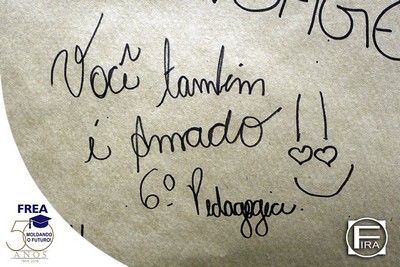 Você também
é Amado !!
6º Pedagogia
FREA
50
MOLDANDO
O FUTURO!
ANOS
FIRA